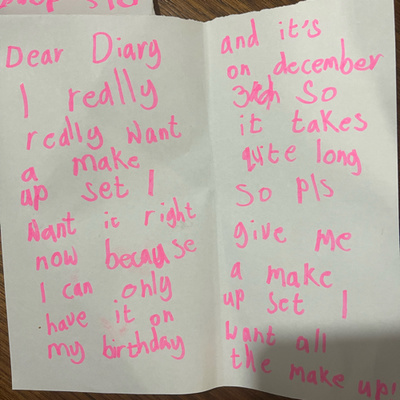 Dear Diary
I really
really want
a make
up set I
Want it right
now because
I can only
have it on
my birthday
and it's
on december
so
it takes
quite long
so pls
give me
a make
up set I
want all
the make up!